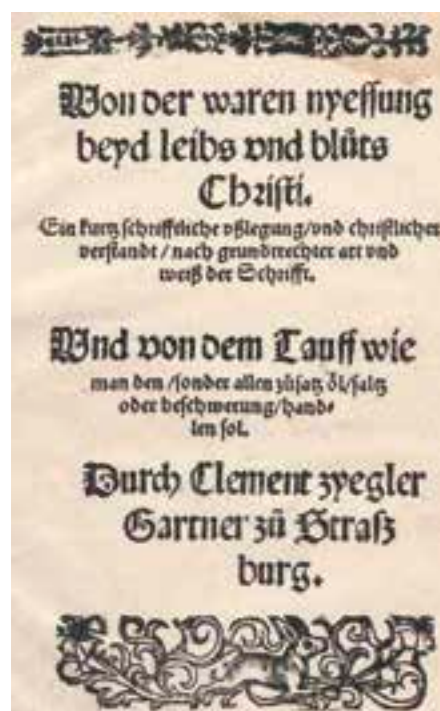 Von der waren nyessung
beyd leibs vnd blůts
Christi.
Ein kurtz schrifftliche vßlegung/vnd christlicher
verstandt / nach grundtrechter art vnd
weiß der Schrifft.
Vnd von dem Tauff wie
man den /sonder allen zůsatz öl/saltz
oder beschwerung/hand⸗
len sol.
Durch Clement zyegler
Gartner zů Straß
burg.